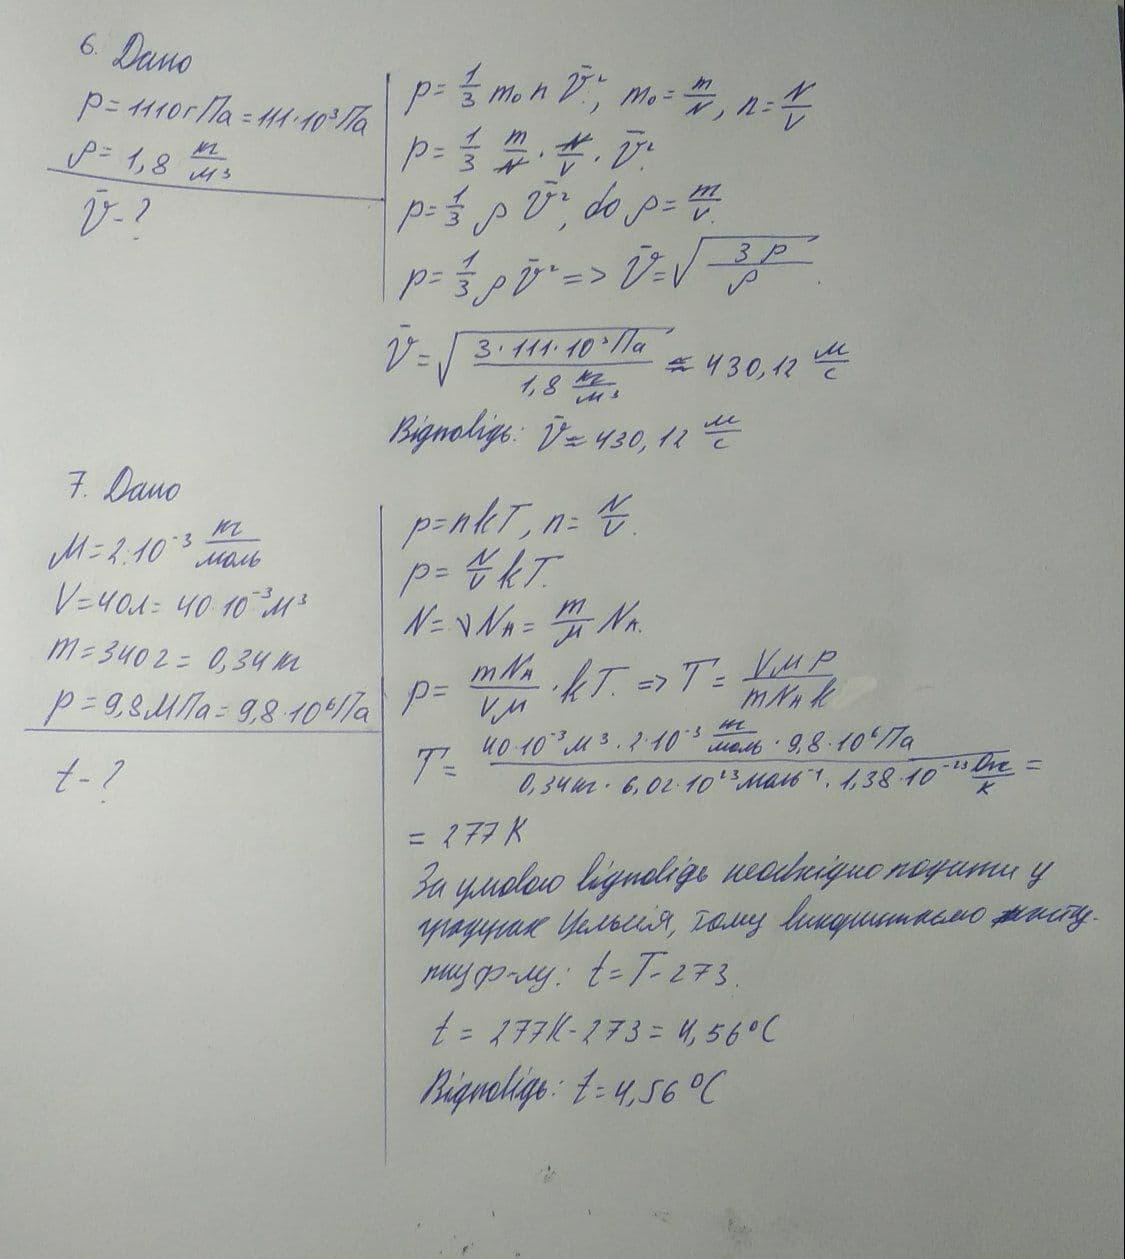 6. Дано
p = 1110 гПа = 111·10³Па
ρ = 1,8 кг/м³
v̄ - ?
p = 1/3 m₀ n v̄², m₀ = m/N, n = N/V
p = 1/3 m/N · N/V · v̄²
p = 1/3 ρ v̄², do ρ = m/V.
p = 1/3 ρ v̄² => v̄ = √(3p/ρ).
v̄ = √(3·111·10³Па / 1,8 кг/м³) ≈ 430,12 м/с
Відповідь: v̄ ≈ 430,12 м/с
7. Дано
M = 2·10⁻³ кг/моль
V = 40л = 40·10⁻³м³
m = 340г = 0,34кг
p = 9,8МПа = 9,8·10⁶Па
t - ?
p = nkT, n = N/V.
p = N/V kT.
N = νNA = m/M NA.
p = mNA/VM · kT. => T = VMp/mNAk
T = 40·10⁻³м³·2·10⁻³ кг/моль·9,8·10⁶Па / 0,34кг·6,02·10²³моль⁻¹·1,38·10⁻²³ Дж/К =
= 277 К
За умовою відповідь необхідно подати у
градусах Цельсія, тому використаємо насту-
пну ф-лу: t = T - 273.
t = 277К - 273 = 4,56°C
Відповідь: t = 4,56°C